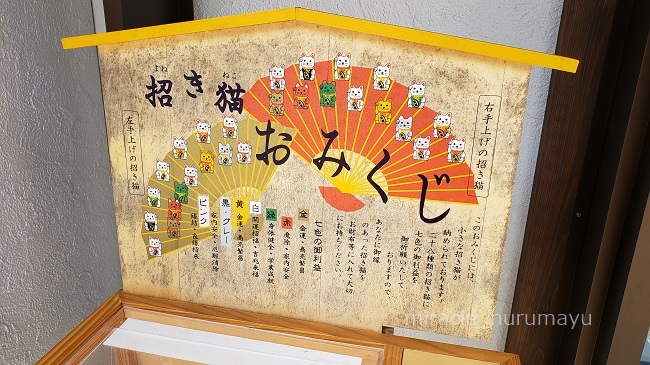 招き猫
まね
ねこ
おみくじ
右手上げの招き猫
左手上げの招き猫
このおみくじには、
小さな招き猫が
納められております。
二十八種類の招き猫に
七色の御利益を
御祈願いたして
おりますので、
あなたに御縁
のあった招き猫を
お財布等に入れて大切
にお持ちください。
七色の御利益
金 金運・商売繁昌
赤 魔除・家内安全
緑 身体健全・学業成就
白 開運招福・吉兆来福
黄 金運・商売繁昌
黒・グレー 家内安全・厄難消除
ピンク 縁結・良縁到来
miracle_nurumayu